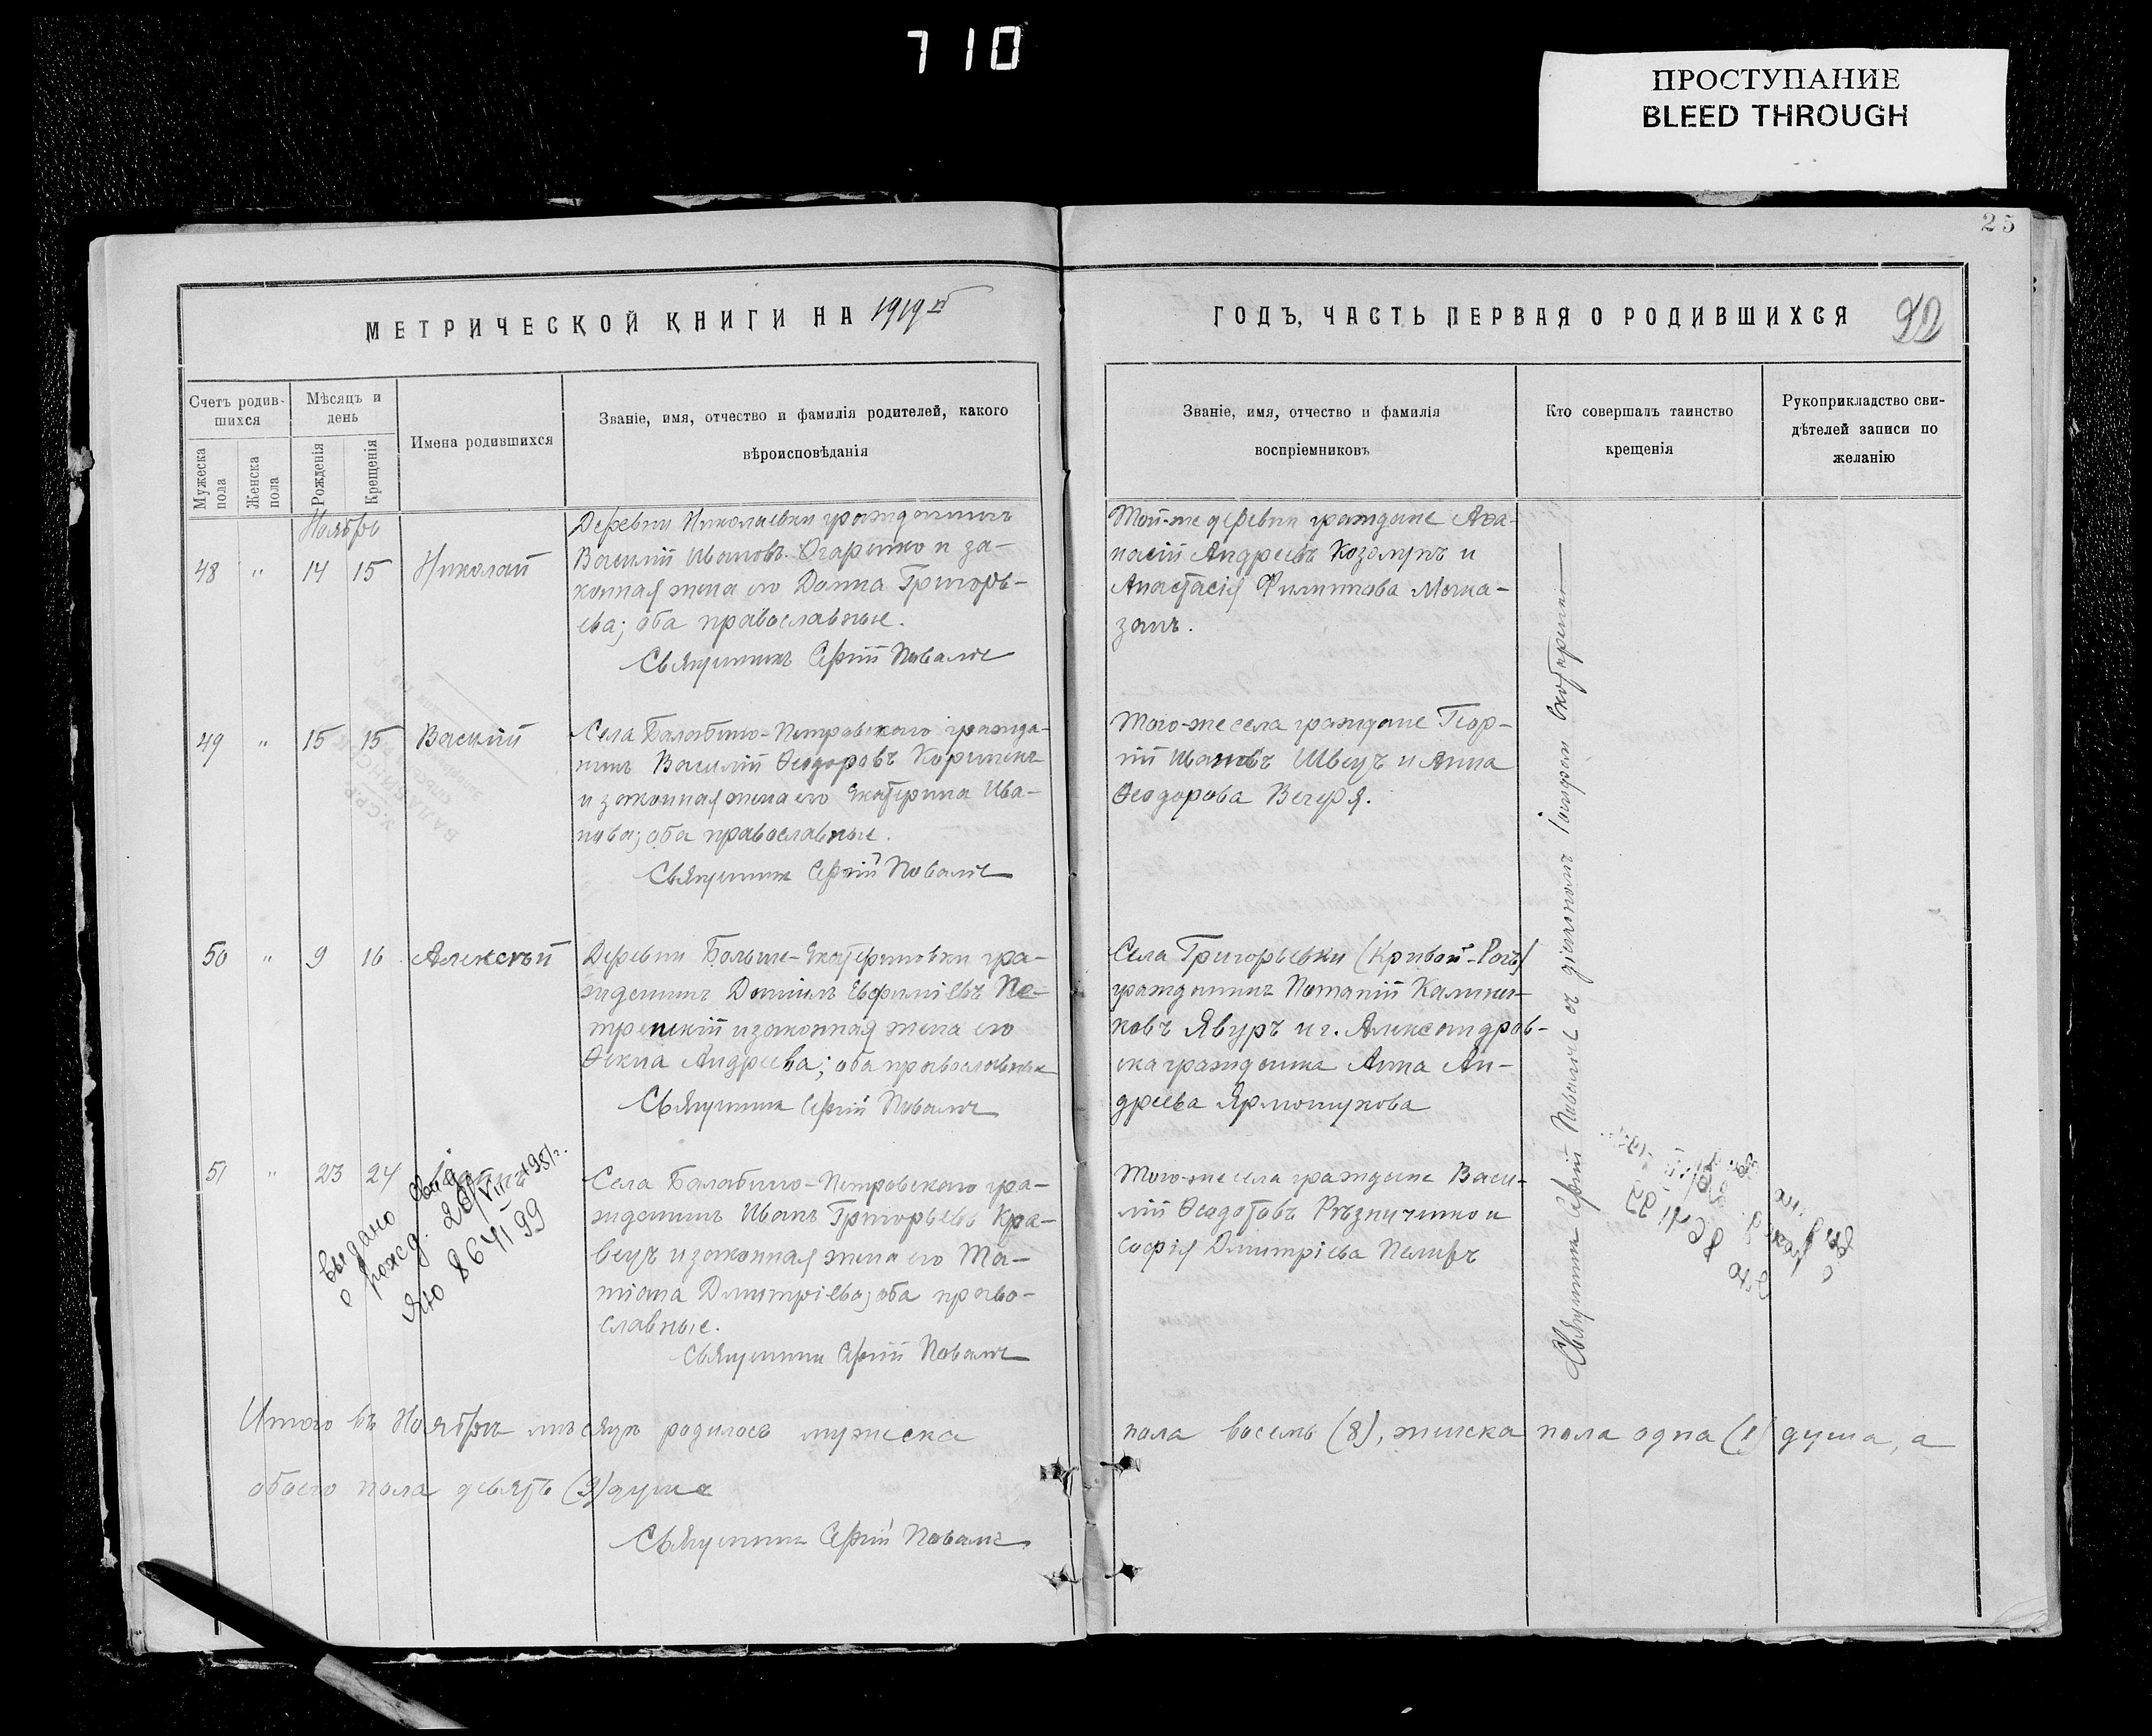 710
ПРОСТУПАНИЕ
BLEED THROUGH
25
МЕТРИЧЕСКОЙ КНИГИ НА 1919й
ГОДЪ, ЧАСТЬ ПЕРВАЯ О РОДИВШИХСЯ
22
Счетъ родив-
шихся
Мужеска
пола
Женска
пола
Мѣсяцъ и
день
Рожденія
Крещенія
Имена родившихся
Званіе, имя, отчество и фамилія родителей, какого
вѣроисповѣданія
Званіе, имя, отчество и фамилія
воспріемниковъ
Кто совершалъ таинство
крещенія
Рукоприкладство сви-
дѣтелей записи по
желанію
Ноябрь
48 " 14 15 Николай
Деревни Николаевки гражданинъ
Василій Ивановъ Огаренко и за-
конная жена его Домна Григорь-
ева; оба православные.
Священникъ Сергій
Той-же деревни граждане Аѳа-
насій Андреевъ и
Анастасія Филиппова
49 " 15 15 Василій
Села Балабино-Петровскаго гражда-
нинъ Василій Ѳеодоровъ
и законная жена его Екатерина Ива-
нова; оба православные.
Священникъ Сергій
Того-же села граждане Геор-
гій Ивановъ Швецъ и Анна
Ѳеодорова Вечеря.
50 " 9 16 Алексѣй
Деревни Больше-Екатериновки гра-
жданинъ Даніилъ Евфиміевъ Пе-
тренкій и законная жена его
Ѳекла Андреева; оба православные
Священникъ Сергій
Села Григорьевки (Кривой-Рогъ)
гражданинъ Потапій Калини-
ковъ Явуръ и г. Александров-
ска гражданка Анна Ан-
дреева
51 " 23 24
Села Балабино-Петровскаго гра-
жданинъ Иванъ Григорьевъ Кра-
вецъ и законная жена его Та-
тіана Дмитріева; оба право-
славные.
Священникъ Сергій
Того-же села граждане Васи-
лій Ѳеодотовъ Рѣзниченко и
Софія Дмитріева
Выдано свид.
о рожд. 20/VII 1951г.
ЯЮ 864199
Священникъ Сергій съ діакономъ
Итого въ Ноябрѣ мѣсяцѣ родилось мужеска
пола восемь (8), женска пола одна (1) душа, а
обоего пола девять (9) душъ
Священникъ Сергій